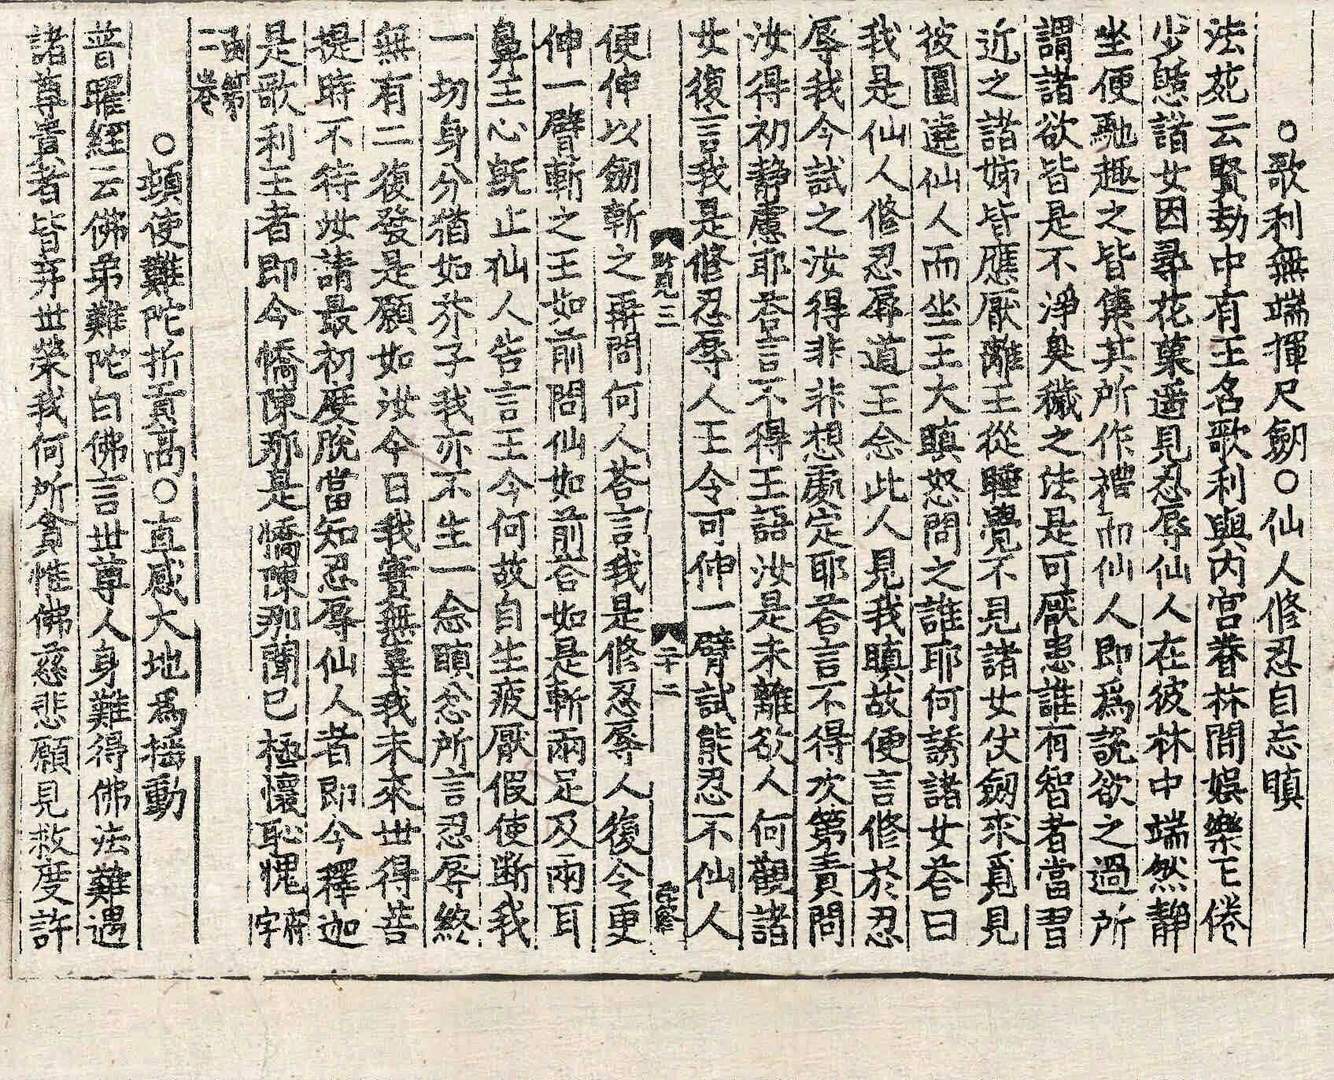 ○歌利無端揮尺劒○仙人修忍自忘瞋
法苑云賢劫中有王名歌利與內宮眷林間娛樂王倦
少憩諸女因尋花菓遥見忍辱仙人在彼林中端然靜
坐便馳趣之皆集其所作禮而仙人即爲說欲之過所
謂諸欲皆是不淨臭穢之法是可厭患誰有智者當習
近之諸姊皆應厭離王從睡覺不見諸女仗劒來覓見
彼圍遶仙人而坐王大瞋怒問之誰耶何誘諸女荅曰
我是仙人修忍辱道王念此人見我瞋故便言修於忍
辱我今試之汝得非非想處定耶荅言不得次第責問
汝得初静慮耶荅言不得王語汝是未離欲人何觀諸
女復言我是修忍辱人王令可伸一臂試能忍不仙人
二十二
便伸以劒斬之再問何人荅言我是修忍辱人復令更
伸一臂斬之王如前問仙如前荅如是斬兩足及兩耳
鼻王心旣止仙人告言王今何故自生疲厭假使断我
一切身分猶如芥子我亦不生一念瞋忿所言忍辱終
無有二復發是願如汝今日我實無辜我未來世得菩
提時不待汝請最初度脫當知忍辱仙人者即今釋迦
是歌利王者即今憍陳那是憍陳那聞已極懷恥愧府字
函第二卷
○頓使難陀折貢高○直感大地爲摇動
普曜経云佛弟難陀白佛言世尊人身難得佛法難遇
諸尊貴者皆弃世榮我何所貪惟佛慈悲願見救度許